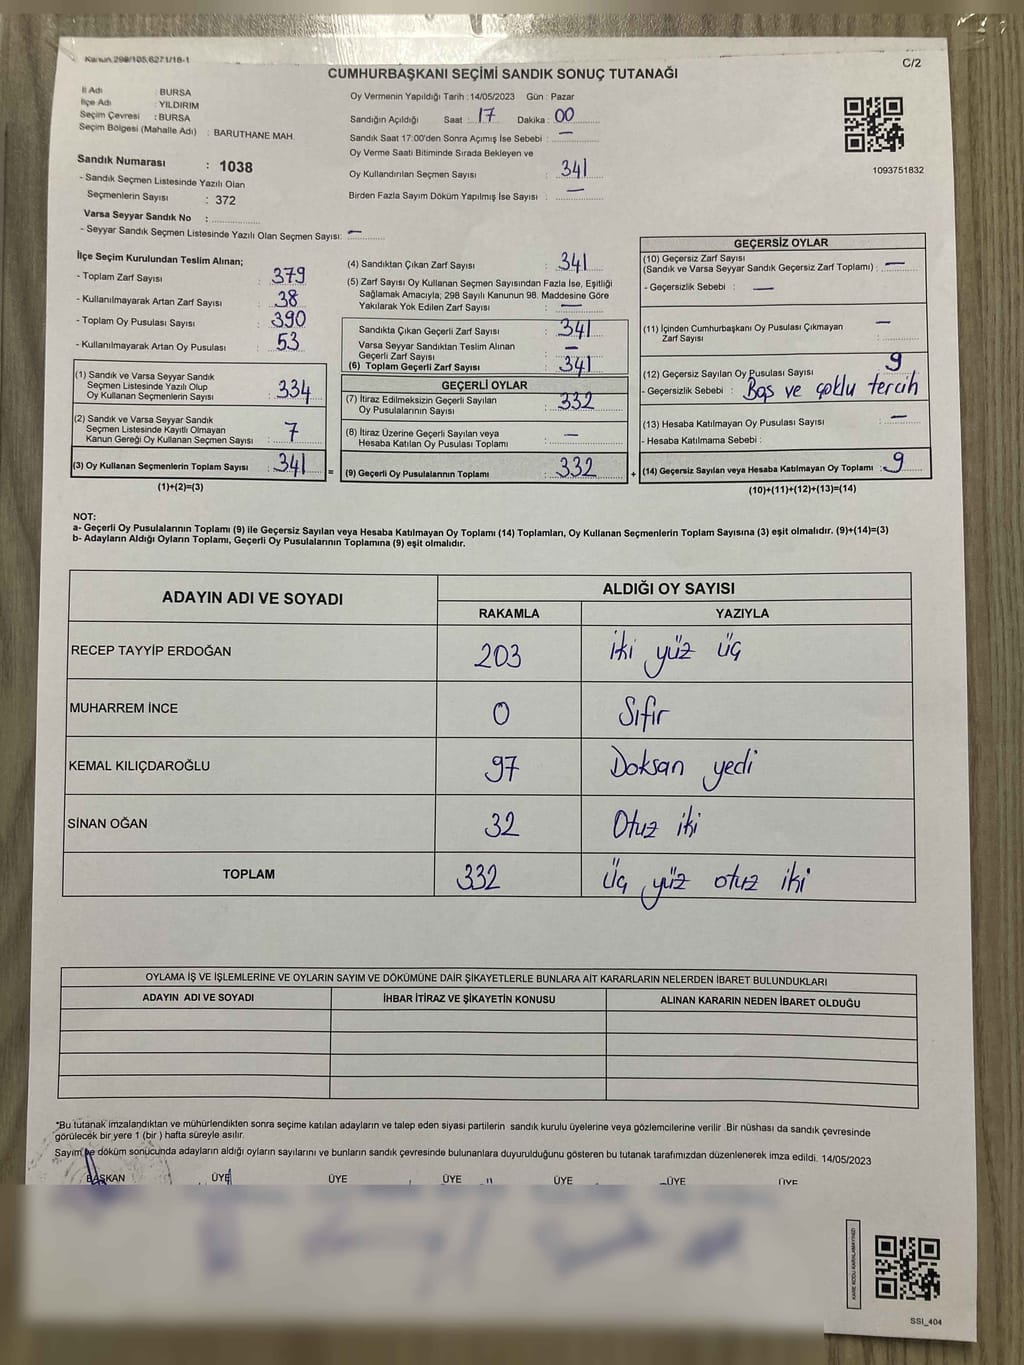 Kanun.298/105,6271/18-1
C/2
CUMHURBAŞKANI SEÇİMİ SANDIK SONUÇ TUTANAĞI
İl Adı : BURSA
İlçe Adı : YILDIRIM
Seçim Çevresi : BURSA
Seçim Bölgesi (Mahalle Adı) : BARUTHANE MAH.
Sandık Numarası : 1038
- Sandık Seçmen Listesinde Yazılı Olan
Seçmenlerin Sayısı : 372
Varsa Seyyar Sandık No :
- Seyyar Sandık Seçmen Listesinde Yazılı Olan Seçmen Sayısı: —
Oy Vermenin Yapıldığı Tarih : 14/05/2023 Gün : Pazar
Sandığın Açıldığı Saat : 17 Dakika : 00
Sandık Saat 17:00'den Sonra Açımış İse Sebebi : —
Oy Verme Saati Bitiminde Sırada Bekleyen ve
Oy Kullandırılan Seçmen Sayısı : 341
Birden Fazla Sayım Döküm Yapılmış İse Sayısı : —
1093751832
İlçe Seçim Kurulundan Teslim Alınan;
- Toplam Zarf Sayısı : 379
- Kullanılmayarak Artan Zarf Sayısı : 38
- Toplam Oy Pusulası Sayısı : 390
- Kullanılmayarak Artan Oy Pusulası : 53
(1) Sandık ve Varsa Seyyar Sandık
Seçmen Listesinde Yazılı Olup
Oy Kullanan Seçmenlerin Sayısı : 334
(2) Sandık ve Varsa Seyyar Sandık
Seçmen Listesinde Kayıtlı Olmayan
Kanun Gereği Oy Kullanan Seçmen Sayısı : 7
(3) Oy Kullanan Seçmenlerin Toplam Sayısı : 341 =
(1)+(2)=(3)
(4) Sandıktan Çıkan Zarf Sayısı : 341
(5) Zarf Sayısı Oy Kullanan Seçmen Sayısından Fazla İse, Eşitliği
Sağlamak Amacıyla; 298 Sayılı Kanunun 98. Maddesine Göre
Yakılarak Yok Edilen Zarf Sayısı : —
Sandıkta Çıkan Geçerli Zarf Sayısı : 341
Varsa Seyyar Sandıktan Teslim Alınan
Geçerli Zarf Sayısı : —
(6) Toplam Geçerli Zarf Sayısı : 341
GEÇERLİ OYLAR
(7) İtiraz Edilmeksizin Geçerli Sayılan
Oy Pusulalarının Sayısı : 332
(8) İtiraz Üzerine Geçerli Sayılan veya
Hesaba Katılan Oy Pusulası Toplamı : —
(9) Geçerli Oy Pusulalarının Toplamı : 332 +
GEÇERSİZ OYLAR
(10) Geçersiz Zarf Sayısı
(Sandık ve Varsa Seyyar Sandık Geçersiz Zarf Toplamı) : —
- Geçersizlik Sebebi : —
(11) İçinden Cumhurbaşkanı Oy Pusulası Çıkmayan
Zarf Sayısı : —
(12) Geçersiz Sayılan Oy Pusulası Sayısı : 9
- Geçersizlik Sebebi : Boş ve çoklu tercih
(13) Hesaba Katılmayan Oy Pusulası Sayısı : —
- Hesaba Katılmama Sebebi :
(14) Geçersiz Sayılan veya Hesaba Katılmayan Oy Toplamı : 9
(10)+(11)+(12)+(13)=(14)
NOT:
a- Geçerli Oy Pusulalarının Toplamı (9) ile Geçersiz Sayılan veya Hesaba Katılmayan Oy Toplamı (14) Toplamları, Oy Kullanan Seçmenlerin Toplam Sayısına (3) eşit olmalıdır. (9)+(14)=(3)
b- Adayların Aldığı Oyların Toplamı, Geçerli Oy Pusulalarının Toplamına (9) eşit olmalıdır.
ADAYIN ADI VE SOYADI ALDIĞI OY SAYISI
RAKAMLA YAZIYLA
RECEP TAYYİP ERDOĞAN 203 İki yüz üç
MUHARREM İNCE 0 Sıfır
KEMAL KILIÇDAROĞLU 97 Doksan yedi
SİNAN OĞAN 32 Otuz iki
TOPLAM 332 Üç yüz otuz iki
OYLAMA İŞ VE İŞLEMLERİNE VE OYLARIN SAYIM VE DÖKÜMÜNE DAİR ŞİKAYETLERLE BUNLARA AİT KARARLARIN NELERDEN İBARET BULUNDUKLARI
ADAYIN ADI VE SOYADI İHBAR İTİRAZ VE ŞİKAYETİN KONUSU ALINAN KARARIN NEDEN İBARET OLDUĞU
*Bu tutanak imzalandıktan ve mühürlendikten sonra seçime katılan adayların ve talep eden siyasi partilerin sandık kurulu üyelerine veya gözlemcilerine verilir .Bir nüshası da sandık çevresinde
görülecek bir yere 1 (bir ) hafta süreyle asılır.
Sayım ve döküm sonucunda adayların aldığı oyların sayılarını ve bunların sandık çevresinde bulunanlara duyurulduğunu gösteren bu tutanak tarafımızdan düzenlenerek imza edildi. 14/05/2023
BAŞKAN ÜYE ÜYE ÜYE ÜYE ÜYE ÜYE
SSI_404